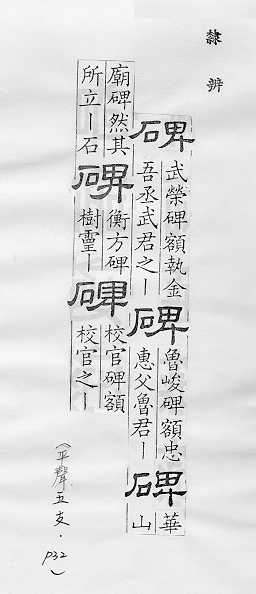 隸辨
碑
武榮碑額執金
吾丞武君之丨
碑
魯峻碑額忠
惠父魯君丨
碑
華
山
廟碑然其
所立丨石
碑
衡方碑
樹靈丨
碑
校官碑額
校官之丨
（平聲五支．P32）